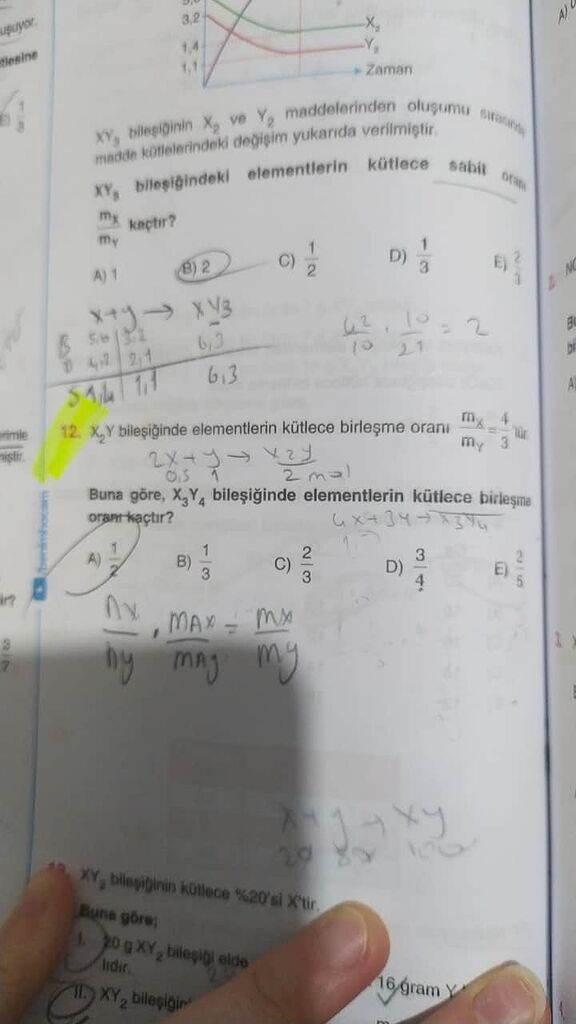 3,2
1,4
1,1
X₂
Y₂
Zaman
XY₃ bileşiğinin X₂ ve Y₂ maddelerinden oluşumu sırasında
madde kütlelerindeki değişim yukarıda verilmiştir.
XY₃ bileşiğindeki elementlerin kütlece sabit oranı
mX/mY kaçtır?
A) 1 B) 2 C) 1/2 D) 1/3 E) 2/3
x+y → XY3
B 5.6 3.2
D 4,2 2,1 6,3
S 1,4 1,1 6.3
42/10 . 10/21 = 2
12. X₂Y bileşiğinde elementlerin kütlece birleşme oranı mX/mY = 4/3 'tür.
2X+y → x2y
0,5 1 2 mol
Buna göre, X₃Y₄ bileşiğinde elementlerin kütlece birleşme
oranı kaçtır?
A) 1/2 B) 1/3 C) 2/3 D) 3/4 E) 2/5
nx/ny . MAx/MAy = mx/my
x+y → xy
20 80 100
XY₂ bileşiğinin kütlece %20'si X'tir.
Buna göre;
I. 20 g XY₂ bileşiği elde
lidir.
II. XY₂ bileşiğin
16 gram Y